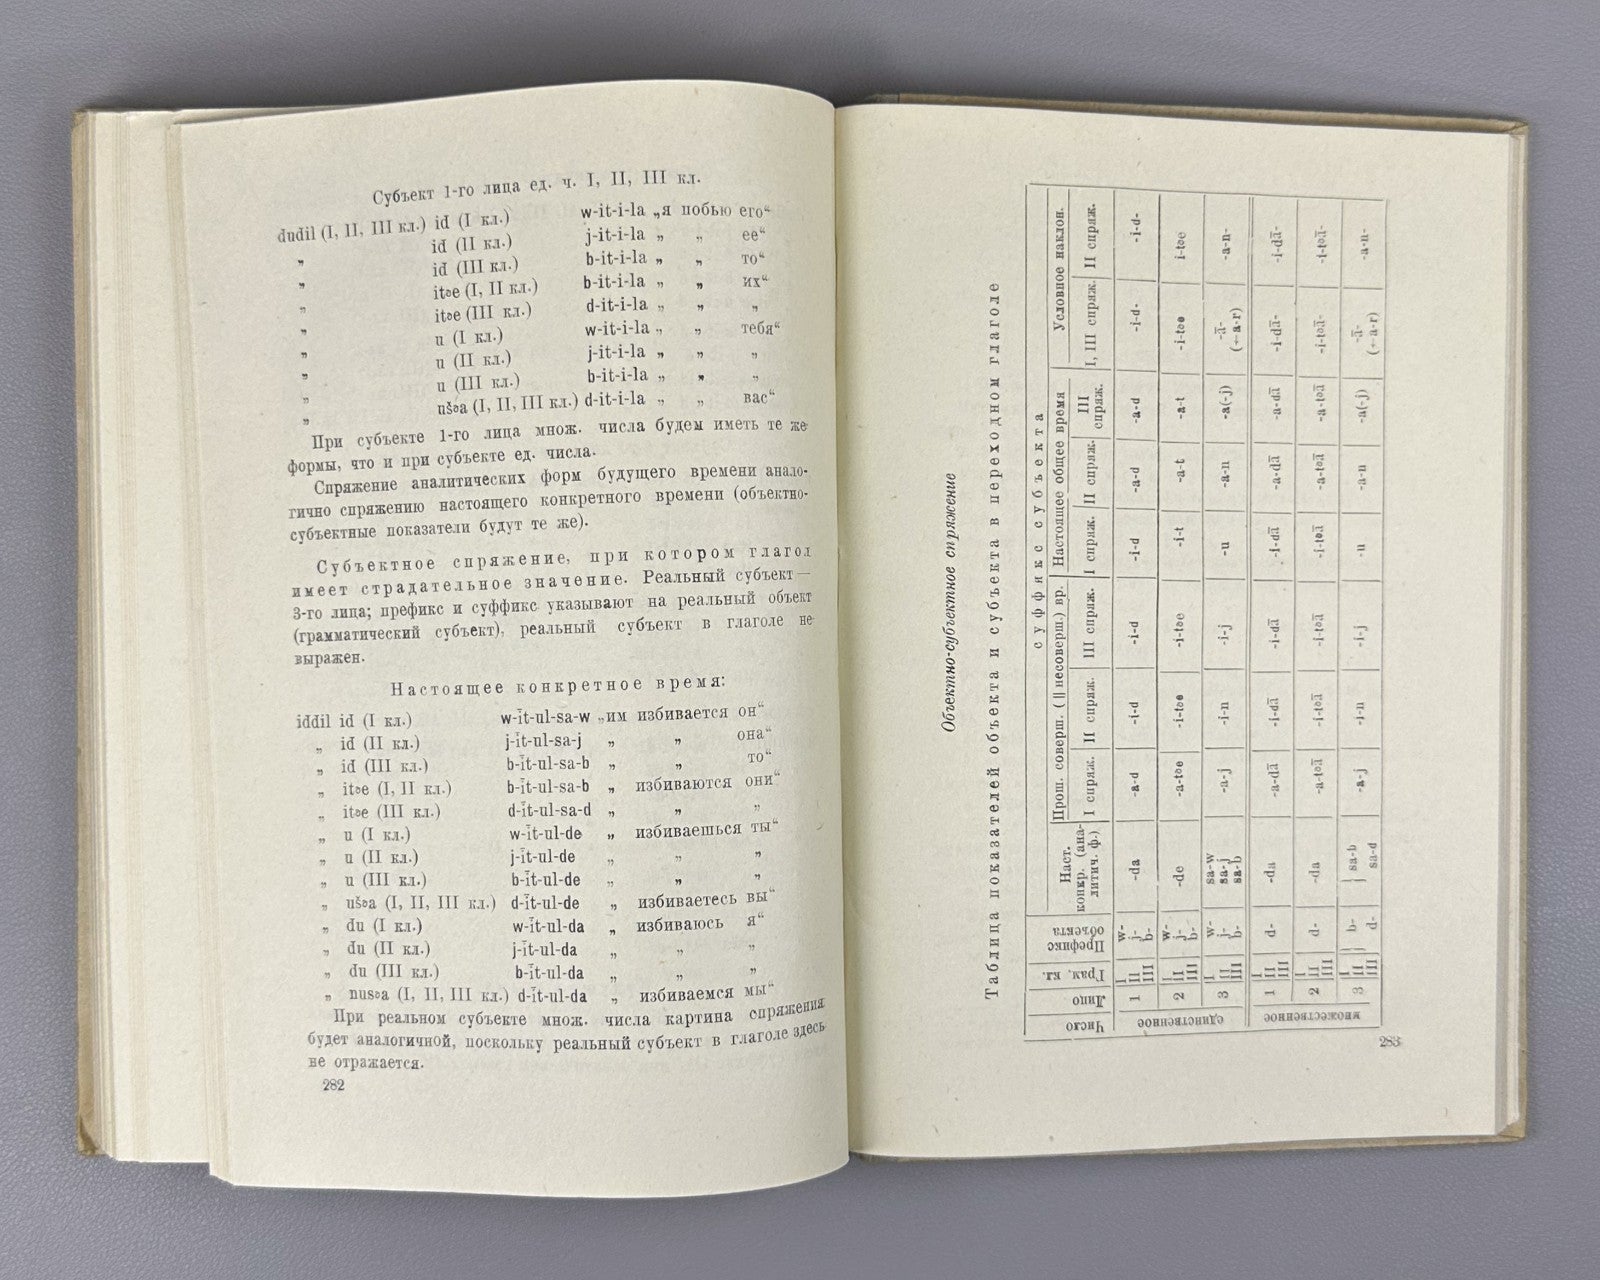 Субъект 1-го лица ед. ч. I, II, III кл.
dudil (I, II, III кл.) id (I кл.) w-it-i-la „я побью его“
„ id (II кл.) j-it-i-la „ „ ее“
„ id (III кл.) b-it-i-la „ „ то“
„ itɘe (I, II кл.) b-it-i-la „ „ их“
„ itɘe (III кл.) d-it-i-la „ „ „
„ u (I кл.) w-it-i-la „ „ тебя“
„ u (II кл.) j-it-i-la „ „ „
„ u (III кл.) b-it-i-la „ „ „
„ ušɘa (I, II, III кл.) d-it-i-la „ „ вас“
При субъекте 1-го лица множ. числа будем иметь те же
формы, что и при субъекте ед. числа.
Спряжение аналитических форм будущего времени анало-
гично спряжению настоящего конкретного времени (объектно-
субъектные показатели будут те же).
Субъектное спряжение, при котором глагол
имеет страдательное значение. Реальный субъект —
3-го лица; префикс и суффикс указывают на реальный объект
(грамматический субъект), реальный субъект в глаголе не
выражен.
Настоящее конкретное время:
iddil id (I кл.) w-īt-ul-sa-w „им избивается он“
„ id (II кл.) j-īt-ul-sa-j „ „ она“
„ id (III кл.) b-īt-ul-sa-b „ „ то“
„ itɘe (I, II кл.) b-īt-ul-sa-b „ избиваются они“
„ itɘe (III кл.) d-īt-ul-sa-d „ „ „
„ u (I кл.) w-īt-ul-de „ избиваешься ты“
„ u (II кл.) j-īt-ul-de „ „ „
„ u (III кл.) b-īt-ul-de „ „ „
„ ušɘa (I, II, III кл.) d-īt-ul-de „ избиваетесь вы“
„ du (I кл.) w-īt-ul-da „ избиваюсь я“
„ du (II кл.) j-īt-ul-da „ „ „
„ du (III кл.) b-īt-ul-da „ „ „
„ nusɘa (I, II, III кл.) d-īt-ul-da „ избиваемся мы“
При реальном субъекте множ. числа картина спряжения
будет аналогичной, поскольку реальный субъект в глаголе здесь
не отражается.
282
Объектно-субъектное спряжение
Таблица показателей объекта и субъекта в переходном глаголе
Число Лицо Грам. кл. Префикс объекта суффикс субъекта
Наст. конкр. (ана-литич. ф.) Прош. соверш. (|| несоверш.) вр. Настоящее общее время Условное наклон.
I спряж. II спряж. III спряж. I спряж. II спряж. III спряж. I, III спряж. II спряж.
единственное 1 I II III w- j- b- -da -a-d -i-d -i-d -i-d -a-d -a-d -i-d- -i-d-
2 I II III w- j- b- -de -a-tɘe -i-tɘe -i-tɘe -i-t -a-t -a-t -i-tɘe i-tɘe
3 I II III w- j- b- sa-w sa-j sa-b -a-j -i-n -i-j -u -a-n -a(-j) -ā- (←a-r) -a-n-
множественное 1 I II III d- -da -a-dā -i-dā -i-dā -i-dā -a-dā -a-dā -i-dā- -i-dā-
2 I II III d- -da -a-tɘā -i-tɘā -i-tɘā -i-tɘā -a-tɘā -a-tɘā -i-tɘā- -i-tɘā-
3 I II III } b- d- } sa-b sa-d -a-j -i-n -i-j -u -a-n -a(-j) -ā- (←a-r) -a-n-
283